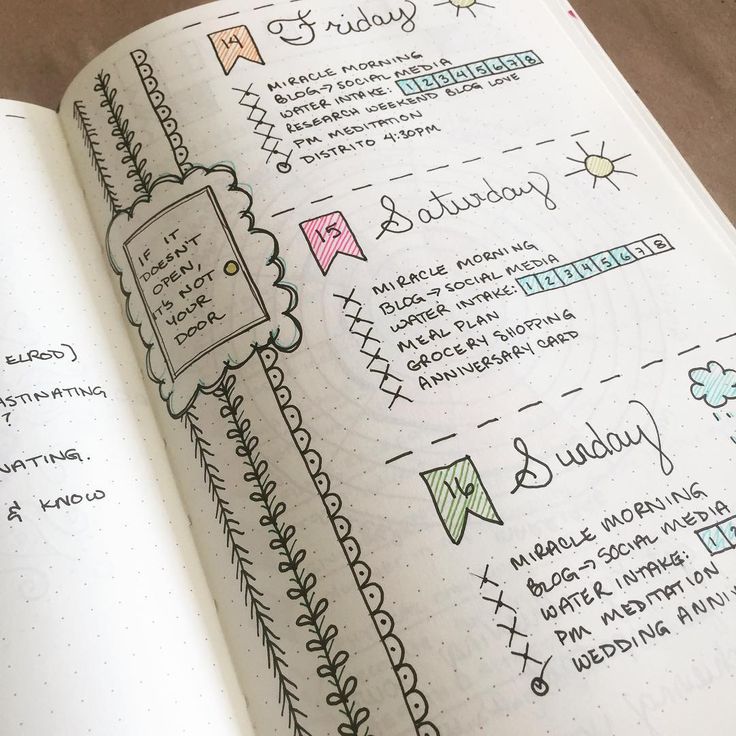 ELROD)
ASTINATING
?
NATING.
& KNOW
14 Friday
MIRACLE MORNING
BLOG→SOCIAL MEDIA
WATER INTAKE: 1 2 3 4 5 6 7 8
RESEARCH WEEKEND BLOG LOVE
PM MEDITATION
DISTRITO 4:30PM
IF IT
DOESN'T
OPEN,
IT'S NOT
YOUR
DOOR
15 Saturday
MIRACLE MORNING
BLOG→SOCIAL MEDIA
WATER INTAKE: 1 2 3 4 5 6 7 8
MEAL PLAN
GROCERY SHOPPING
ANNIVERSARY CARD
16 Sunday
MIRACLE MORNING
BLOG→SOCIAL MEDIA
WATER INTAKE: 1 2
PM MEDITATION
WEDDING ANNIV